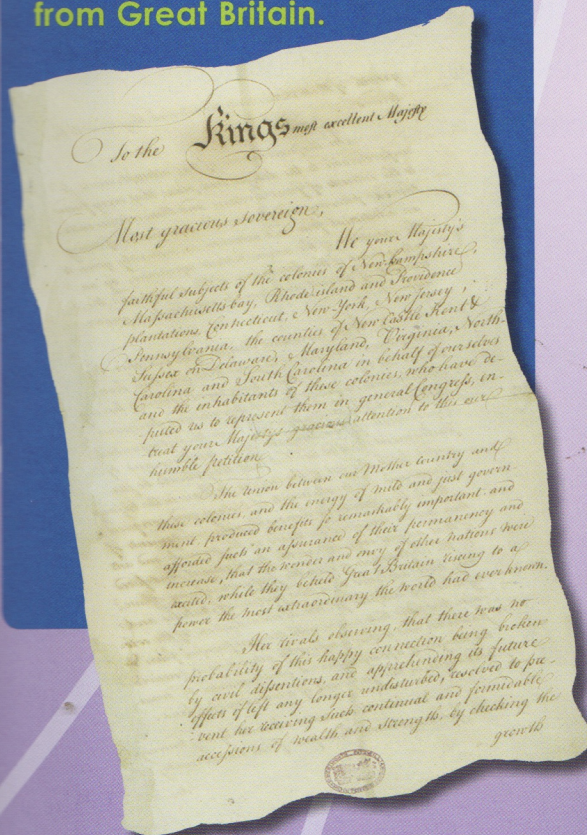 from Great Britain.
To the Kings most excellent Majesty
Most gracious Sovereign,
We your Majesty's
faithful subjects of the colonies of New-hampshire,
Massachusetts bay, Rhode island and Providence
plantations, Connecticut, New-York, New Jersey,
Pennsylvania, the counties of New Castle Kent &
Sussex on Delaware, Maryland, Virginia, North-
Carolina and South Carolina in behalf of ourselves
and the inhabitants of these colonies, who have de-
puted us to represent them in general Congress, en-
treat your Majesty's gracious attention to this our
humble petition.
The union between our Mother Country and
these colonies, and the energy of mild and just govern-
ment, produced benefits so remarkably important, and
afforded such an assurance of their permanency and
increase, that the wonder and envy of other nations were
excited, while they beheld Great Britain riseing to a
power the most extraordinary the world had ever known.
Her rivals observing, that there was no
probability of this happy connection being broken
by civil dissentions, and apprehending its future
effects if left any longer undisturbed, resolved to pre-
vent her receiving such continual and formidable
accessions of wealth and strength, by checking the
growth